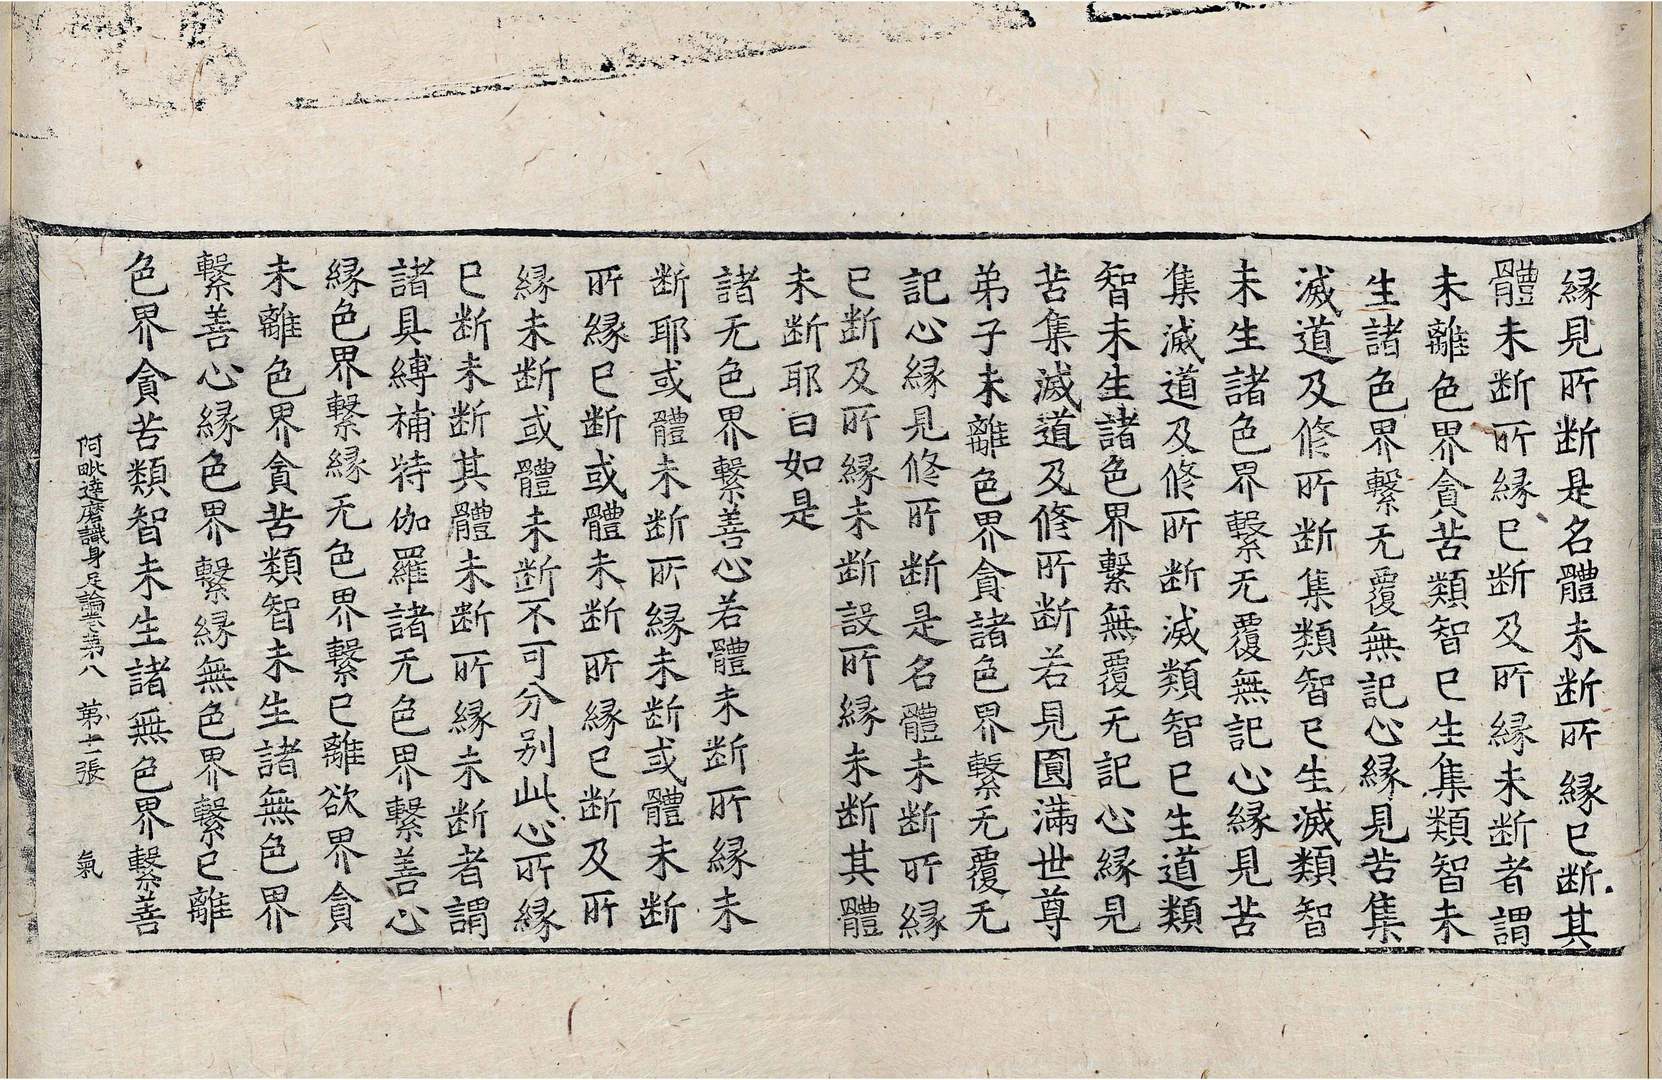 縁見所斷是名體未斷所縁已斷其
體未斷所縁已斷及所縁未斷者謂
未離色界貪苦類智已生集類智未
生諸色界繫无覆無記心縁見苦集
滅道及修所斷集類智已生滅類智
未生諸色界繫无覆無記心縁見苦
集滅道及修所斷滅類智已生道類
智未生諸色界繫無覆无記心縁見
苦集滅道及修所斷若見圓滿世尊
弟子未離色界貪諸色界繫无覆无
記心縁見修所斷是名體未斷所縁
已斷及所縁未斷設所縁未斷其體
未斷耶曰如是
諸无色界繫善心若體未斷所縁未
斷耶或體未斷所縁未斷或體未斷
所縁已斷或體未斷所縁已斷及所
縁未斷或體未斷不可分別此心所縁
已斷未斷其體未斷所縁未斷者謂
諸具縛補特伽羅諸无色界繫善心
縁色界繫縁无色界繫已離欲界貪
未離色界貪苦類智未生諸無色界
繫善心縁色界繫縁無色界繫已離
色界貪苦類智未生諸無色界繫善
阿毗達磨識身足論卷第八　第十二張　氣